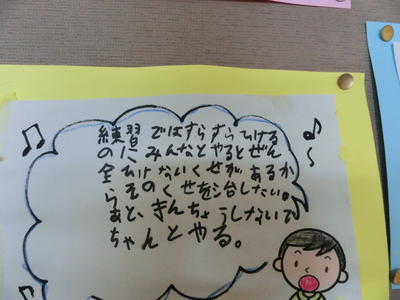 練習ではすらすらひける
のにみんなとやるとぜん
全ひけないくせがあるか
らそのくせを治したい。
あと、きんちょうしないで
ちゃんとやる。